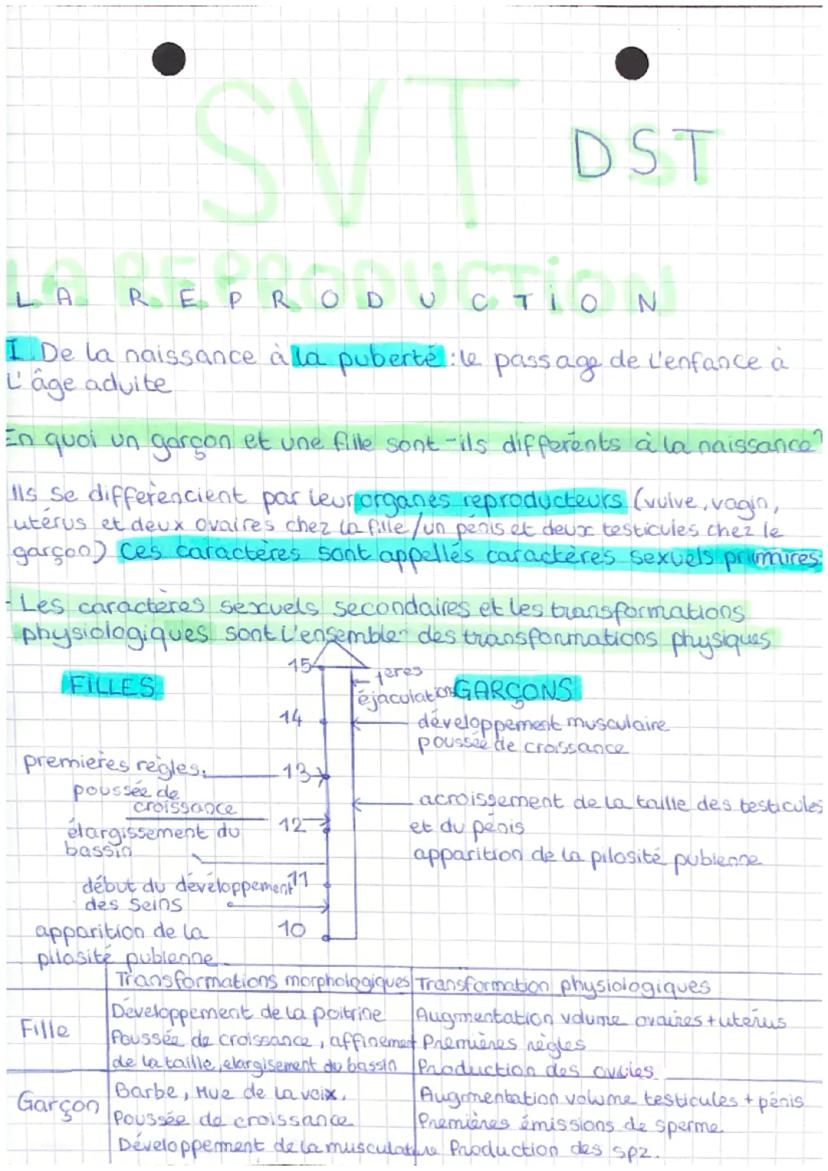 SVT DST
LA REPRODUCTION
LA REPRODUCTION
I De la naissance à la puberté : le passage de l'enfance à
l'âge adulte
En quoi un garçon et une fille sont-ils différents à la naissance?
Ils se différencient par leur organes reproducteurs (vulve, vagin,
utérus et deux ovaires chez la fille/un pénis et deux testicules chez le
garçon) Ces caractères sont appellés caractères sexuels primaires.
- Les caractères sexuels secondaires et les transformations
physiologiques sont l'ensemble des transformations physiques
FILLES
15
1eres
éjaculations
GARÇONS
14
développement musculaire
poussée de croissance
premières règles.
13
poussée de
croissance
acroissement de la taille des testicules
et du pénis
12
élargissement du
bassin
apparition de la pilosité pubienne
11
début du développement
des seins
10
apparition de la
pilosité pubienne
Transformations morphologiques Transformation physiologiques
Fille
Développement de la poitrine
Poussée de croissance, affinement
de la taille, elargisement du bassin
Augmentation volume ovaires + utérus
Premières règles
Production des ovules
Garçon
Barbe, Mue de la voix.
Poussée de croissance
Développement de la musculature
Augmentation volume testicules + pénis
Premières émissions de sperme
Production des spz.